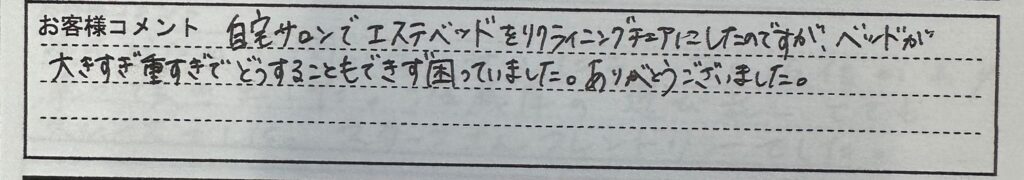 お客様コメント 自宅サロンでエステベッドをリクライニングチェアにしたのですが、ベッドが
大きすぎ重すぎでどうすることもできず困っていました。ありがとうございました。